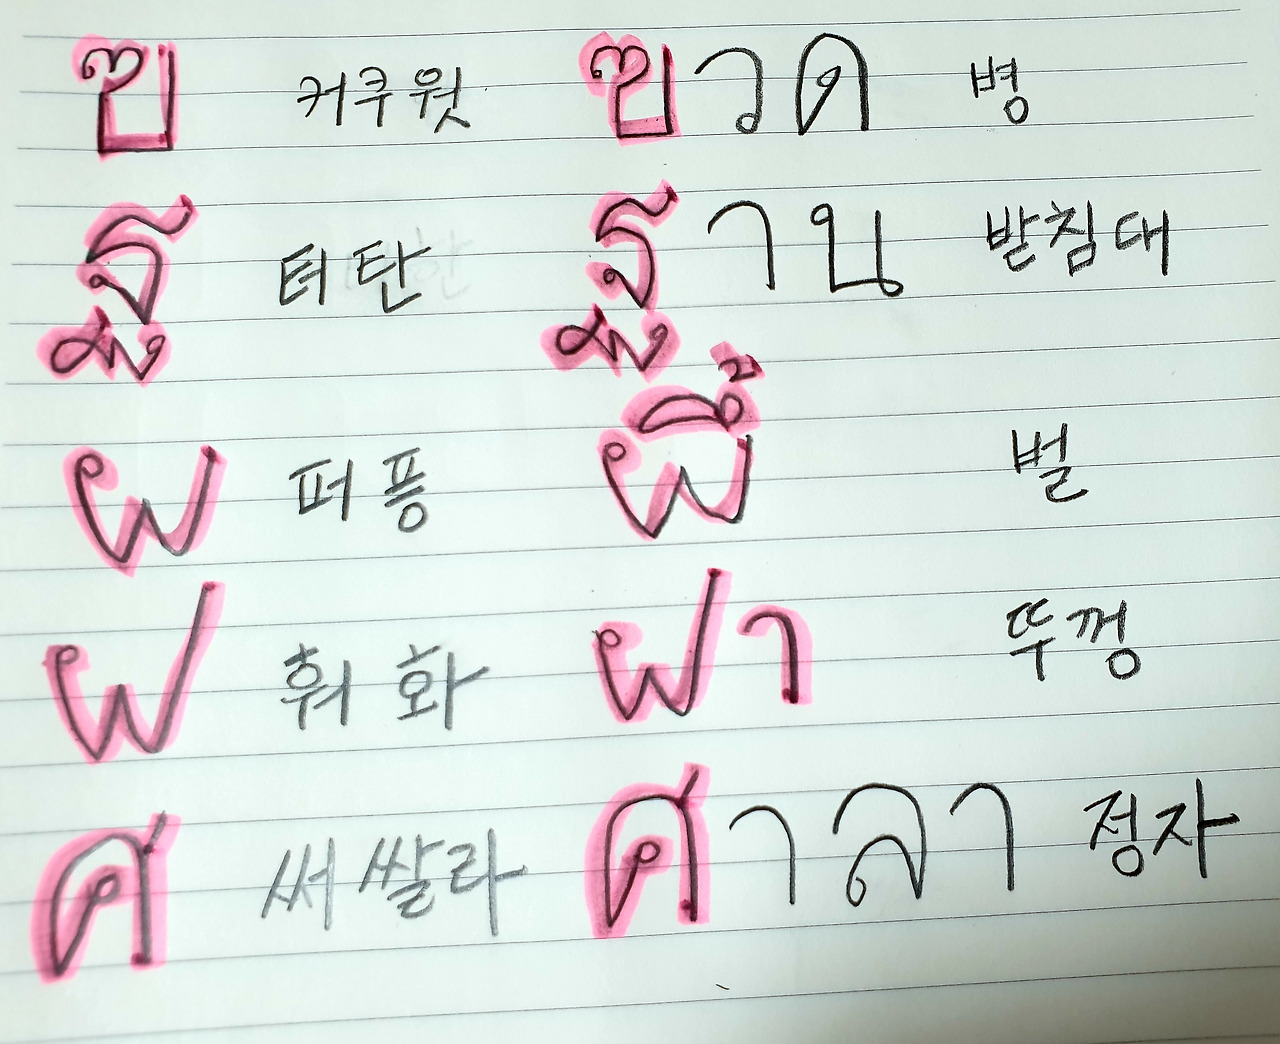 ฃ 커쿠웟 ฃวด 병
ฐ 터탄 ฐาน 받침대
ผ 퍼픙 ผึ้ 벌
ฝ 훠화 ฝา 뚜껑
ศ 써쌀라 ศาลา 정자